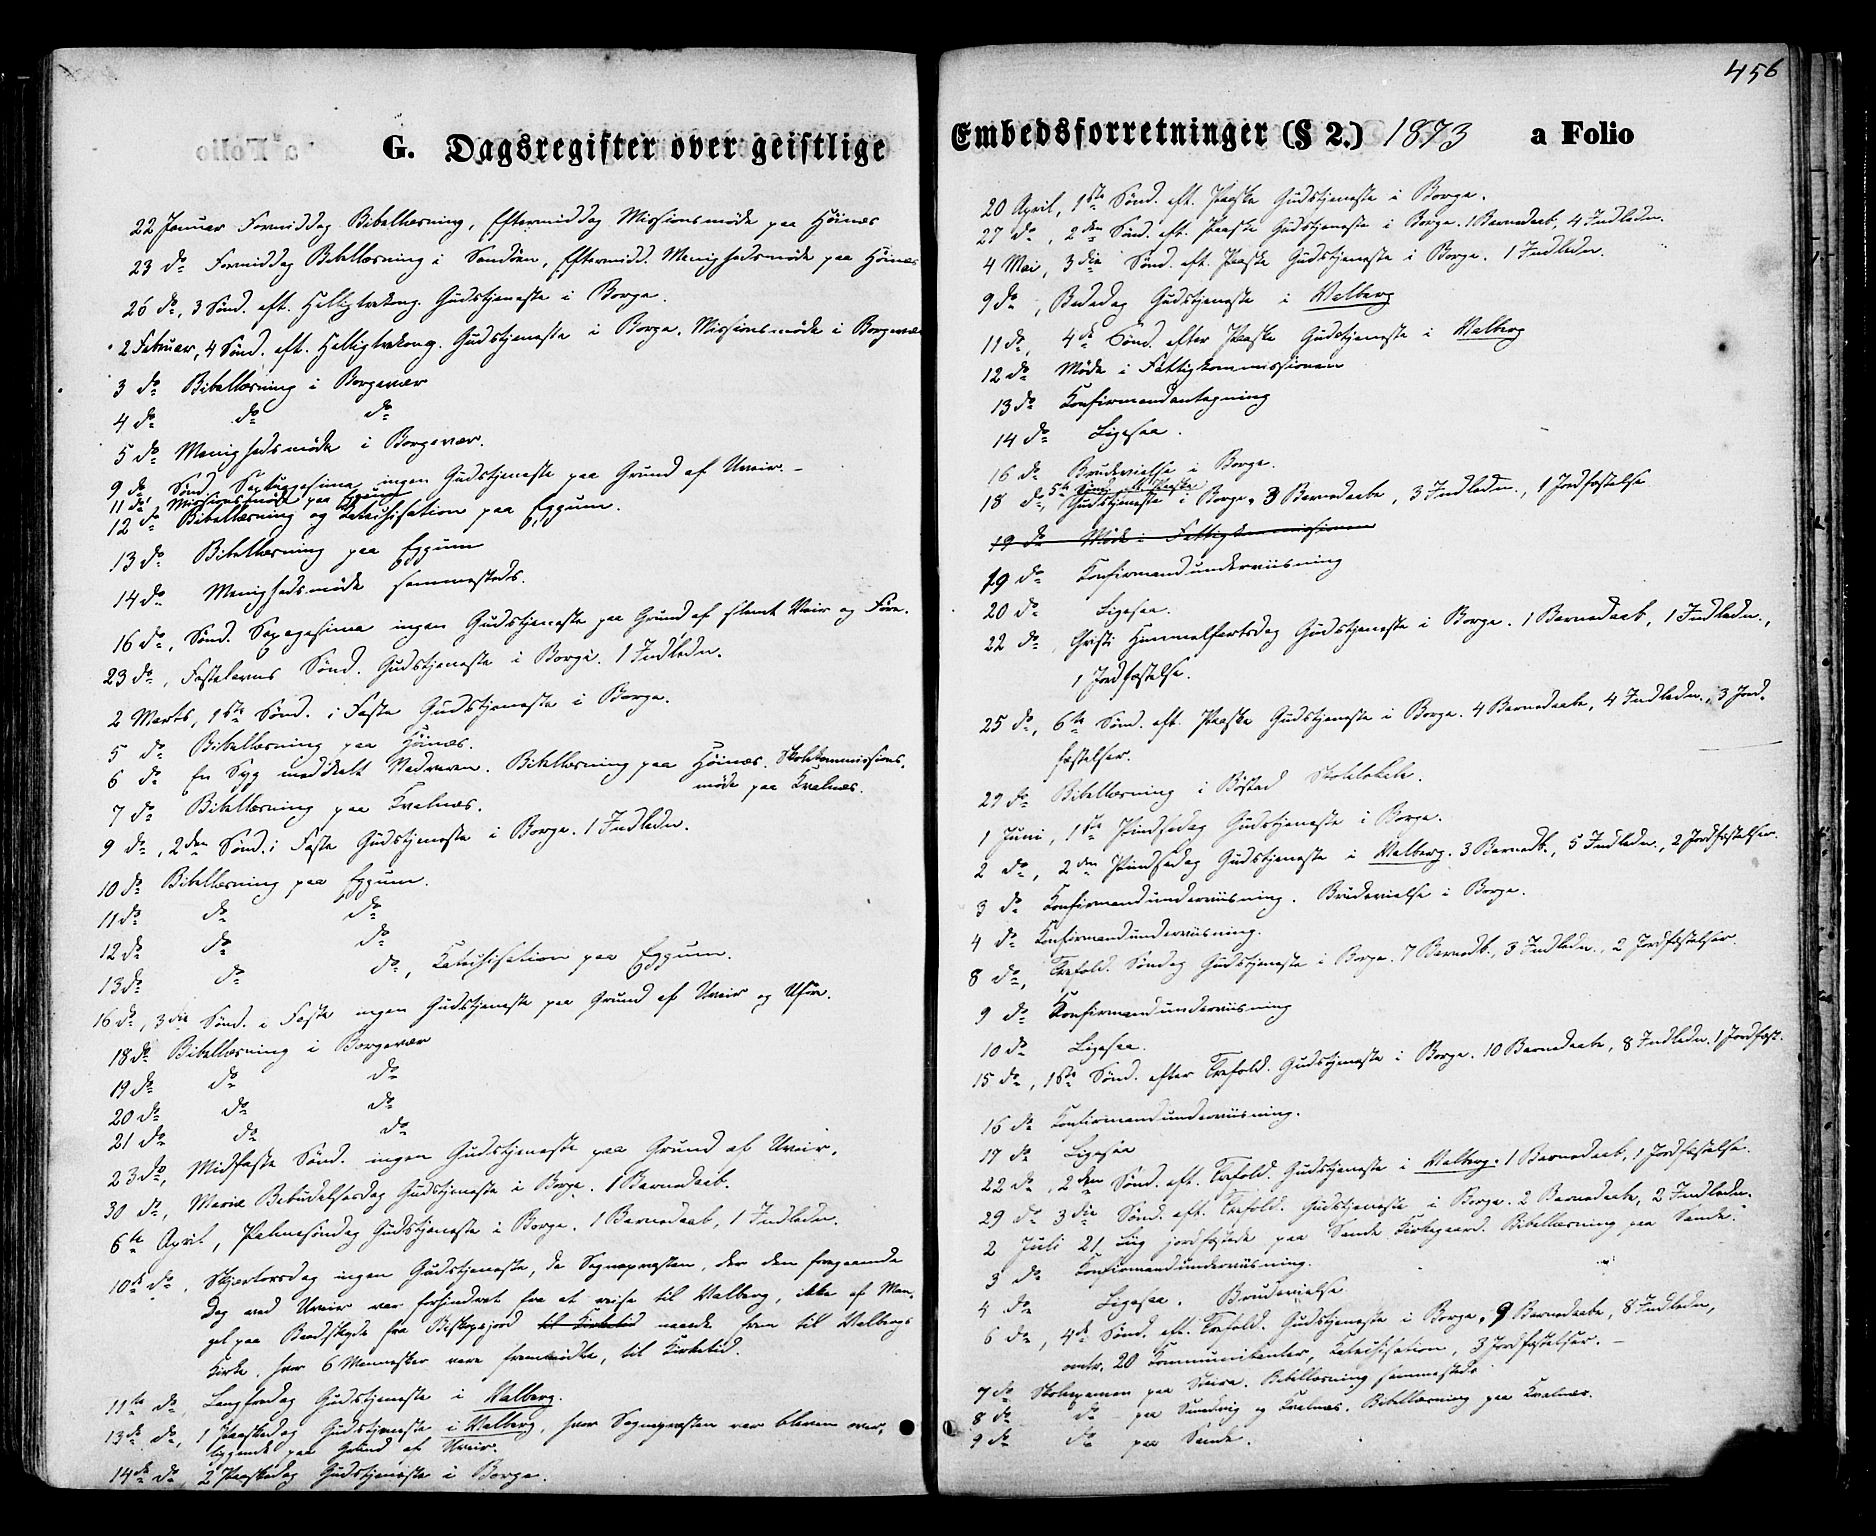 456
G. Dagsregister over geistlige Embedsforretninger (§ 2.) 1873 a Folio
22 Januar Formiddag Bibellæsning, Eftermiddag Missionsmøde paa Høinæs
23 do Formiddag Bibellæsning i Sandøen, Eftermidd. Menighedsmøde paa Høinæs
26 do, 3 Sønd. eft. Helligtrekong. Gudstjeneste i Borge.
2 Februar, 4 Sønd. eft. Helligtrekong. Gudstjeneste i Borge. Missionsmøde i Borgevær
3 do Bibellæsning i Borgevær
4 do do do
5 do Menighedsmøde i Borgevær.
9 do Sønd. Septuagesima ingen Gudstjeneste paa Grund af Uveir. –
11 do Missionsmøde paa Eggum
12 do Bibellæsning og Katechisation paa Eggum.
13 do Bibellæsning paa Eggum
14 do Menighedsmøde sammesteds.
16 do, Sønd. Sexagesima ingen Gudstjeneste paa Grund af slemt Veir og Føre.
23 do, Fastelavns Sønd. Gudstjeneste i Borge. 1 Indledn.
2 Marts, 1ste Sønd. i Faste Gudstjeneste i Borge.
5 do Bibellæsning paa Høinæs.
6 do En Syg meddelt Nadveren. Bibellæsning paa Høinæs. Skolekommissions-
møde paa Kvalnæs.
7 do Bibellæsning paa Kvalnæs.
9 do, 2den Sønd. i Faste Gudstjeneste i Borge. 1 Indledn.
10 do Bibellæsning paa Eggum.
11 do do do
12 do do do
13 do do do, Katechisation paa Eggum.
16 do, 3die Sønd. i Faste ingen Gudstjeneste paa Grund af Uveir og Uføre.
18 do Bibellæsning i Borgevær
19 do do do
20 do do do
21 do do do
23 do, Midfaste Sønd. ingen Gudstjeneste paa Grund af Uveir.
30 do, Mariæ Bebudelsesdag Gudstjeneste i Borge. 1 Barnedaab.
6te April, Palmesøndag Gudstjeneste i Borge. 1 Barnedaab, 1 Indledn.
10de do, Skjærtorsdag ingen Gudstjeneste, da Sognepræsten, der den foregaaende
Dag ved Uveir var forhindret fra at reise til Valberg, ikke af Man-
gel paa Baadskyds fra Bispejord til Kirketid naaede frem til Valbergs
Kirke, hvor 6 Mennesker vare fremmødte, til Kirketid.
11te do, Langfredag Gudstjeneste i Valberg.
13de do, 1 Paaskedag Gudstjeneste i Valberg, hvor Sognepræsten var bleven over-
liggende paa Grund af Uveir.
14de do, 2 Paaskedag Gudstjeneste i Borge.
20 April, 1ste Sønd. eft. Paaske Gudstjeneste i Borge.
27 do, 2den Sønd. eft. Paaske Gudstjeneste i Borge. 1 Barnedaab, 4 Indledn.
4 Mai, 3die Sønd. eft. Paaske Gudstjeneste i Borge. 1 Indledn.
9 do, Bededag Gudstjeneste i Valberg
11 do, 4de Sønd. efter Paaske Gudstjeneste i Valberg
12 do Møde i Fattigkommissionen
13 do Konfirmandantagning
14 do Ligesaa.
16 do Brudevielse i Borge.
5te Sønd. eft. Paaske
18 do, Gudstjeneste i Borge, 3 Barnedaabe, 3 Indledn., 1 Jordfæstelse
19 do Møde i Fattigkommissionen
19 do Konfirmandunderviisning
20 do Ligesaa.
22 do, Christi Himmelfartsdag Gudstjeneste i Borge. 1 Barnedaab, 1 Indledn.,
1 Jordfæstelse.
25 do, 6te Sønd. eft. Paaske Gudstjeneste i Borge. 4 Barnedaabe, 4 Indledn., 3 Jord-
fæstelser.
29 do Bibellæsning i Bøstad Skolelokale.
1 Juni, 1ste Pindsedag Gudstjeneste i Borge.
2 do, 2den Pindsedag Gudstjeneste i Valberg. 3 Barnedb., 5 Indledn., 2 Jordfæstelser.
3 do Konfirmandunderviisning. Brudevielse i Borge.
4 do Konfirmandunderviisning.
8 do, Trefold. Søndag Gudstjeneste i Borge. 7 Barnedb., 3 Indledn., 2 Jordfæstelser.
9 do Konfirmandunderviisning
10 do Ligesaa.
15 do, 1ste Sønd. efter Trefold. Gudstjeneste i Borge. 10 Barnedaabe, 8 Indledn. 1 Jordfæst.
16 do Konfirmandunderviisning.
17 do Ligesaa
22 do, 2den Sønd. eft. Trefold. Gudstjeneste i Valberg. 1 Barnedaab, 1 Jordfæstelse.
29 do 3die Sønd. eft. Trefold. Gudstjeneste i Borge. 2 Barnedaabe, 2 Indledn.
2 Juli 21 Liig jordfæstede paa Sande Kirkegaard. Bibellæsning paa Sande.
3 do Konfirmandunderviisning.
4 do Ligesaa. Brudevielse
6 do, 4de Sønd. eft. Trefold. Gudstjeneste i Borge, 9 Barnedaabe, 8 Indledn,
omtr. 20 Kommunikanter, Katechisation, 3 Jordfæstelser. –
7 do Skoleexamen paa Steira. Bibellæsning sammesteds
8 do do paa Sundvig og Kvalnæs. Bibellæsning paa Kvalnæs.
9 do do paa Sande.